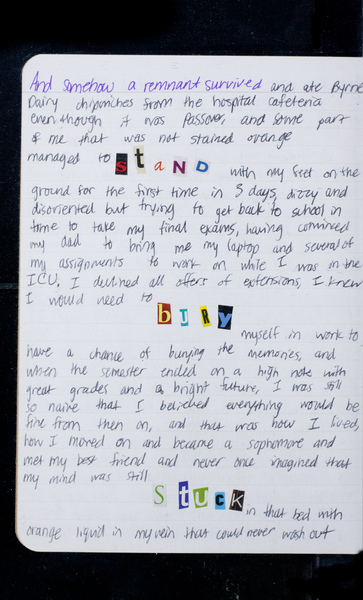 And somehow a remnant survived and ate Byrne
Dairy chipwiches from the hospital cafeteria
even though it was Passover, and some part
of me that was not stained orange
managed to stAND with my feet on the
ground for the first time in 3 days, dizzy and
disoriented but trying to get back to school in
time to take my final exams, having convinced
my dad to bring me my laptop and several of
my assignments to work on while I was in the
ICU. I declined all offers of extensions, I knew
I would need to
bURy
myself in work to
have a chance of burying the memories, and
when the semester ended on a high note with
great grades and a bright future, I was still
so naive that I believed everything would be
fine from then on, and that was how I lived,
how I moved on and became a sophomore and
met my best friend and never once imagined that
my mind was still
StucK in that bed with
orange liquid in my vein that could never wash out